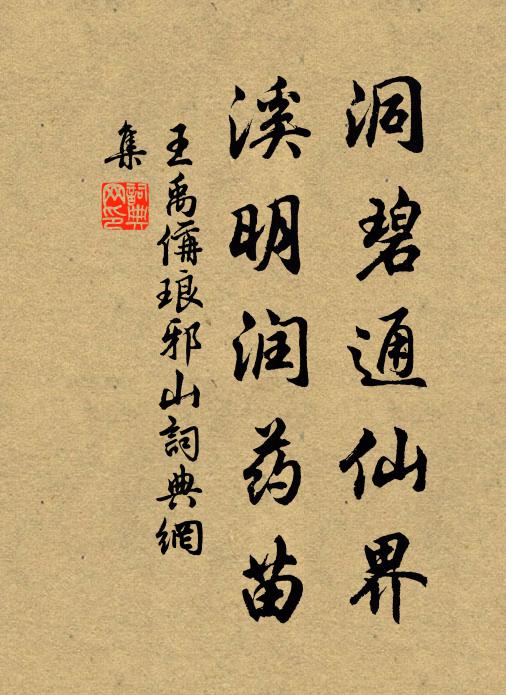 洞碧通仙界
溪明润药苗
王禹偁琅邪山詞典網
集
詞典网印